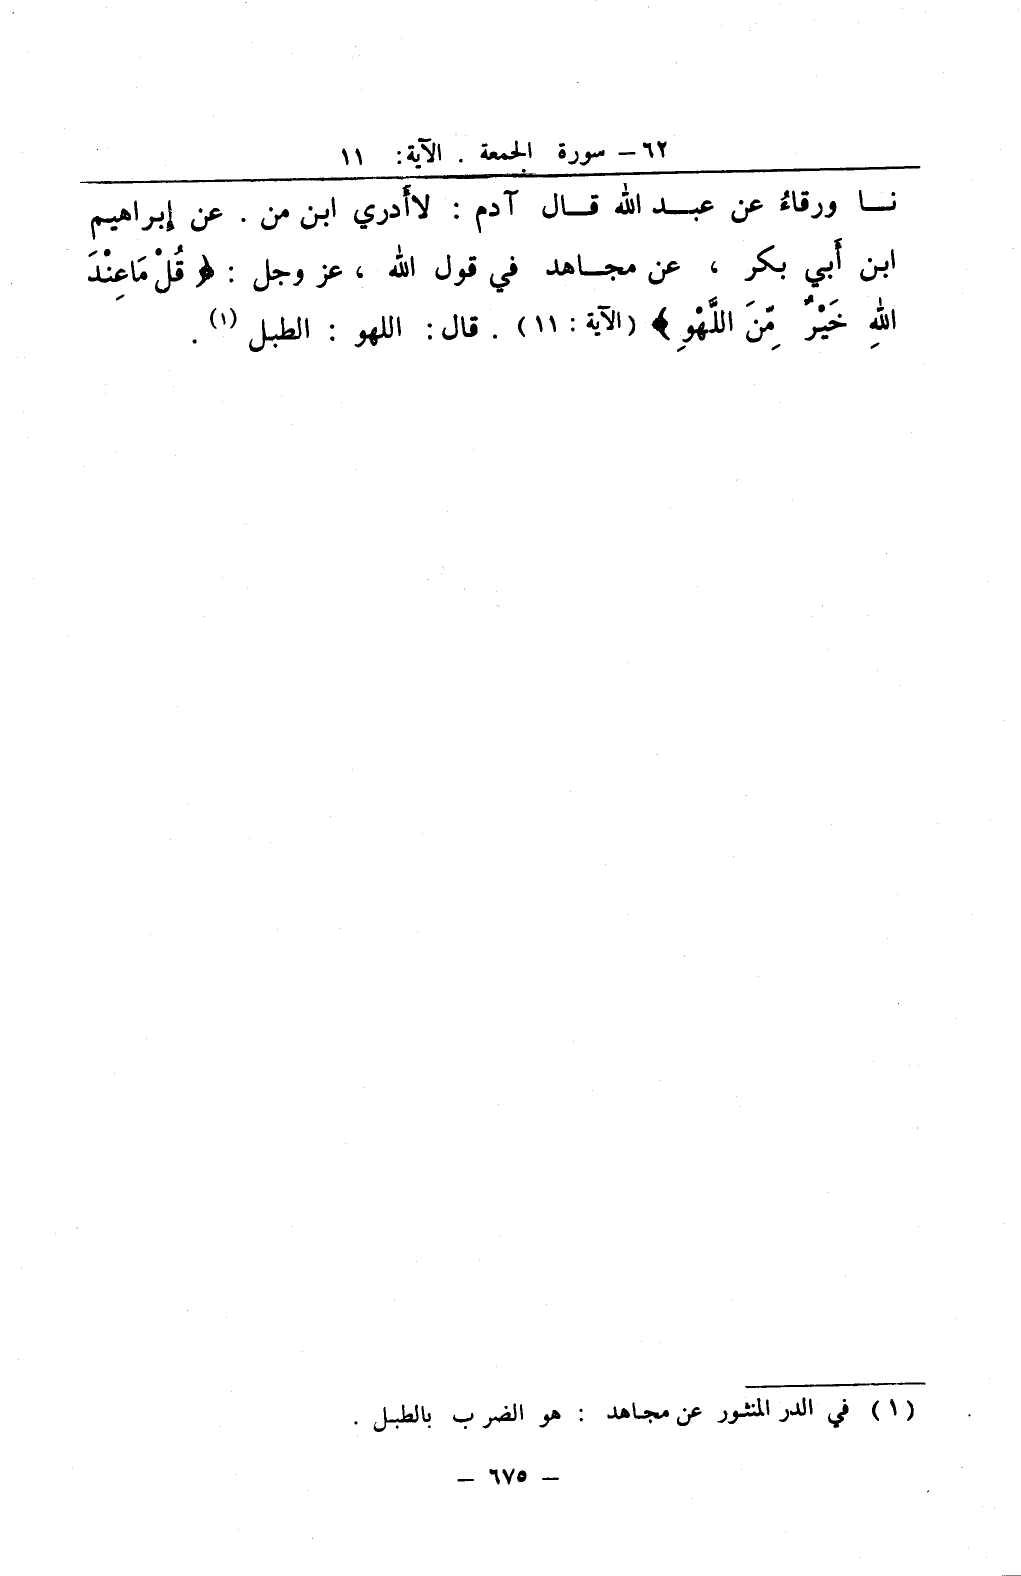 ٦٢ – سورة الجمعة . الآية: ١١
نـا ورقاءُ عن عبـد الله قـال آدم : لاأَدري ابن من . عن إبراهيم
ابن أَبي بكر ، عن مجـاهد في قول الله ، عز وجل : ﴿ قُلْ مَاعِنْدَ
اللهِ خَيْرٌ مِّنَ اللَّهْوِ ﴾ (الآية : ١١) . قال : اللهو : الطبل (١) .
(١) في الدر المنثور عن مجاهد : هو الضرب بالطبل .
– ٦٧٥ –